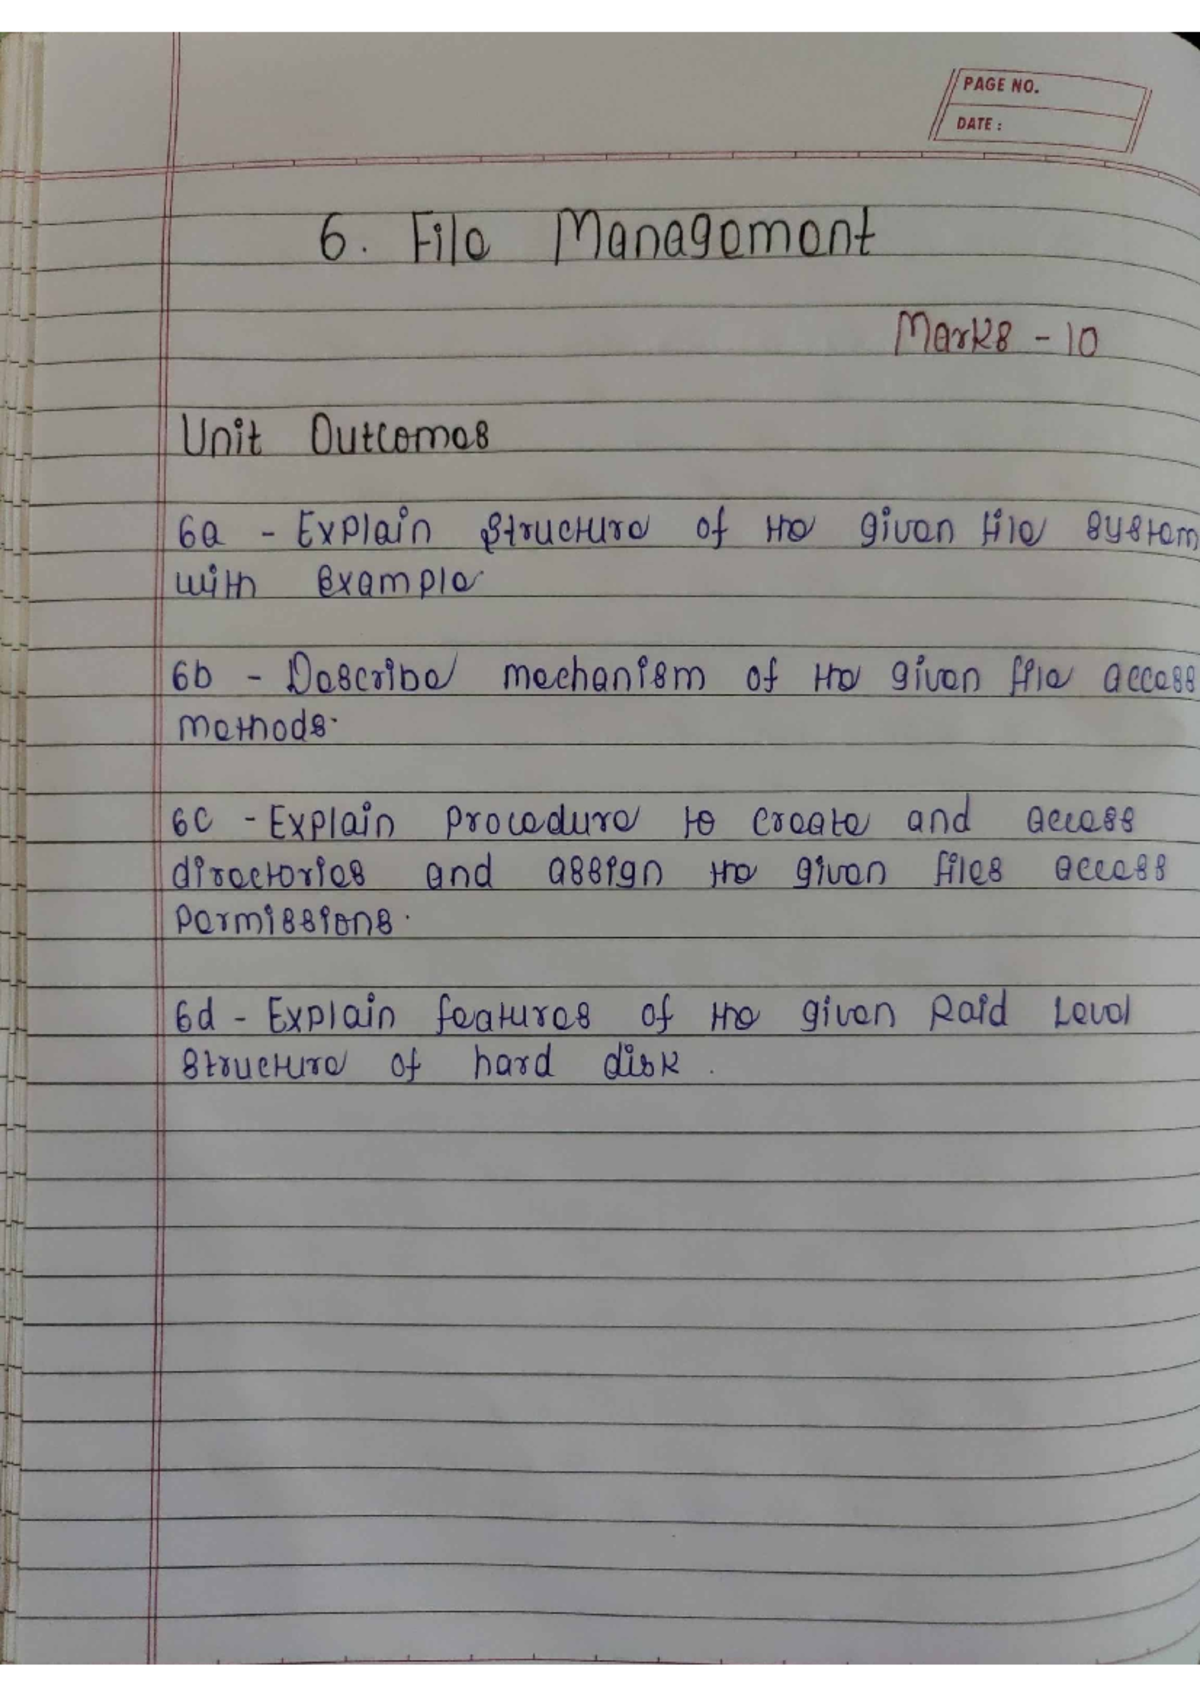 PAGE NO.
DATE :
6. File Management
Marks - 10
Unit Outcomes
6a - Explain structure of the given file system
with example.
6b - Describe mechanism of the given file access
methods.
6c - Explain procedure to create and access
directories and assign the given files access
permissions.
6d - Explain features of the given Raid Level
structure of hard disk.